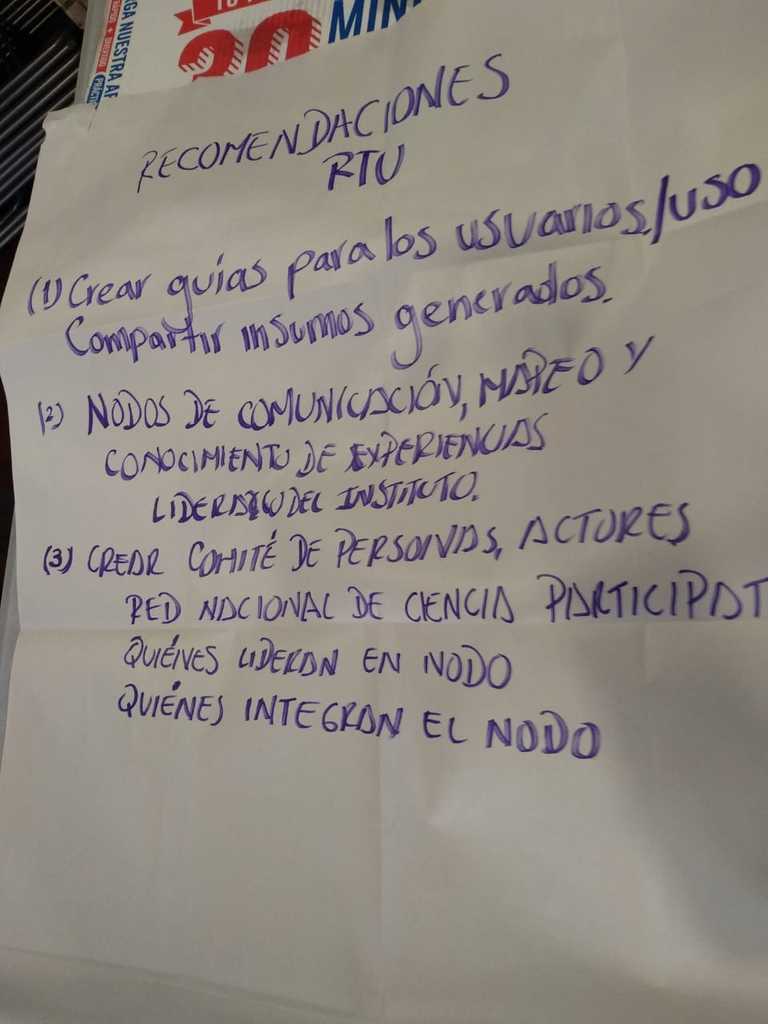 GA NUESTRA AF
MIN
RECOMENDACIONES
RTU
(1) Crear guías para los usuarios/uso
Compartir insumos generados.
(2) NODOS DE COMUNICACIÓN, MAPEO Y
CONOCIMIENTO DE EXPERIENCIAS
LIDERAZGO DEL INSTITUTO.
(3) CREAR COMITÉ DE PERSONAS, ACTORES
RED NACIONAL DE CIENCIA PARTICIPAT
QUIÉNES LIDERAN EN NODO
QUIÉNES INTEGRAN EL NODO